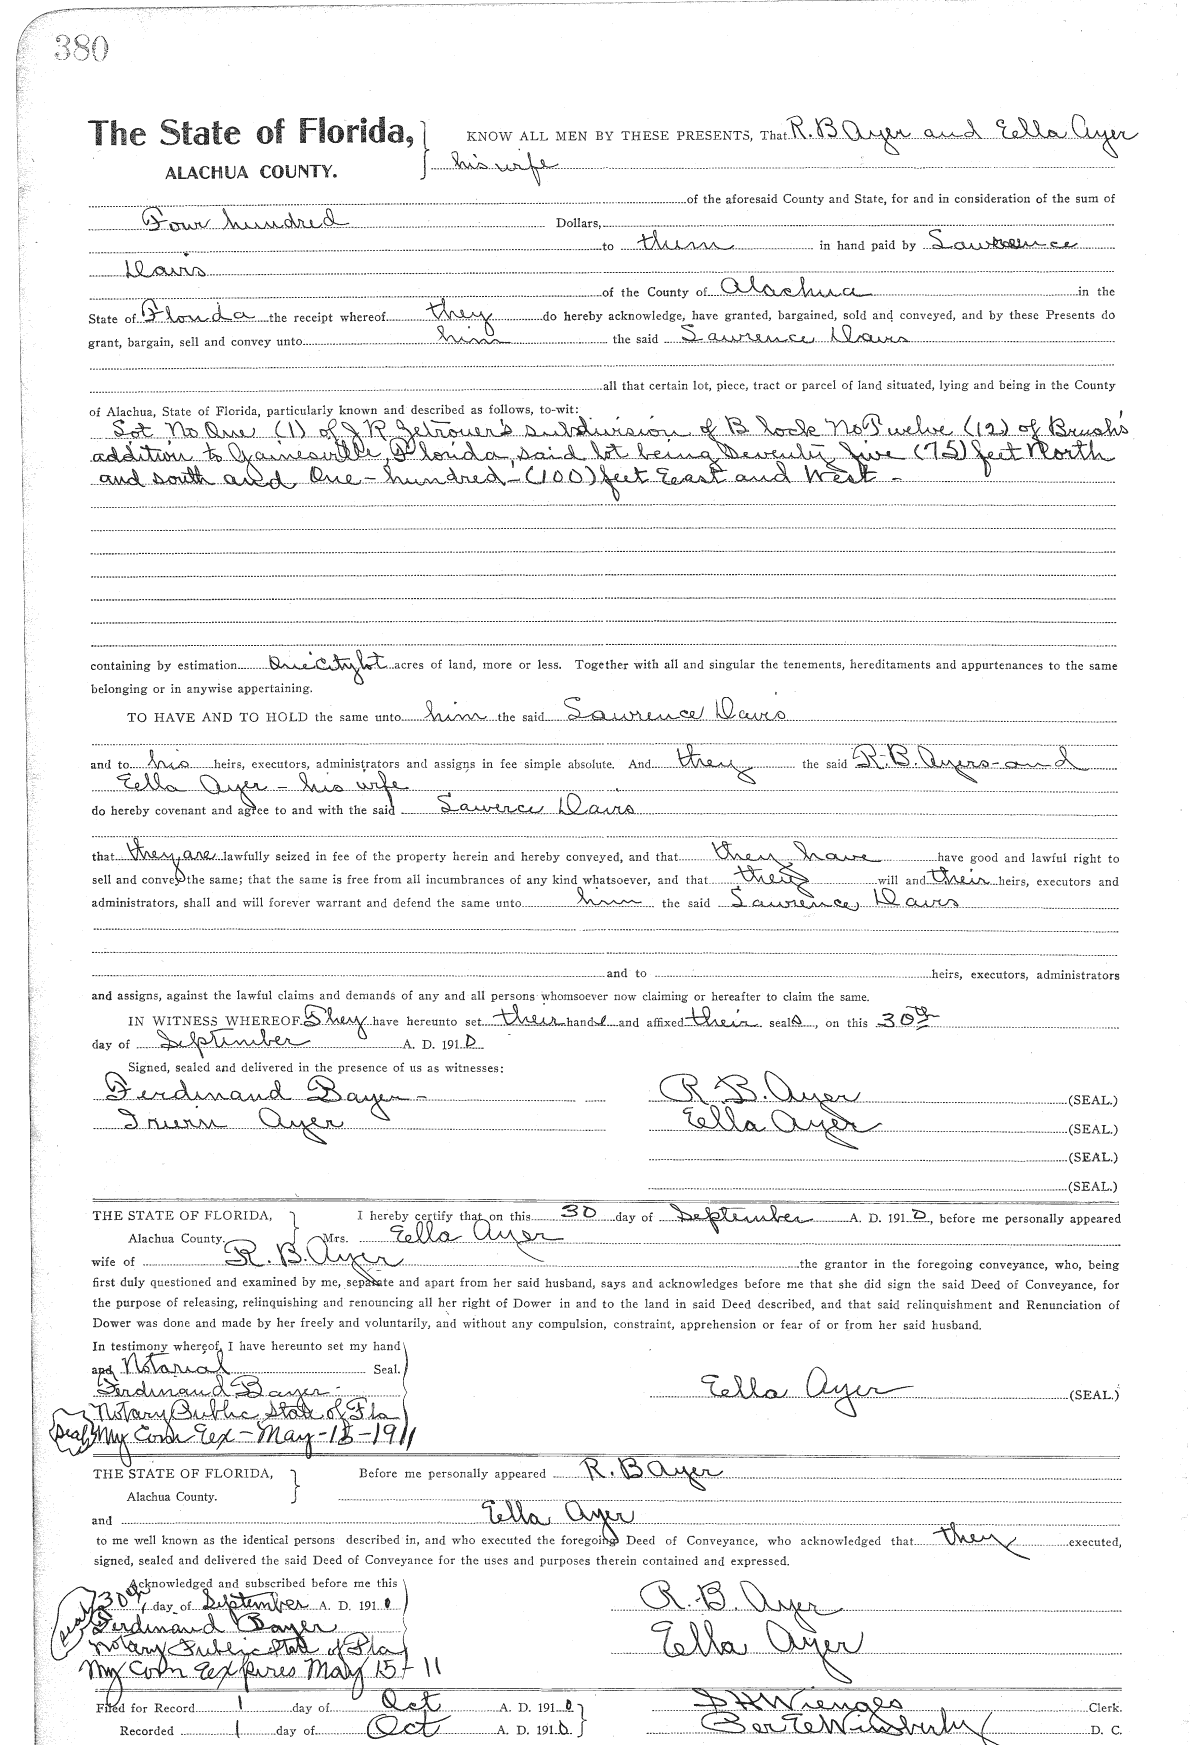 380
The State of Florida, KNOW ALL MEN BY THESE PRESENTS, That R. B Ayer and Eella Ayer
ALACHUA COUNTY. his wife
of the aforesaid County and State, for and in consideration of the sum of
Four hundred Dollars,
to them in hand paid by Lawrence
Davis
of the County of Alachua in the
State of Florida the receipt whereof they do hereby acknowledge, have granted, bargained, sold and conveyed, and by these Presents do
grant, bargain, sell and convey unto him the said Lawrence Davis
all that certain lot, piece, tract or parcel of land situated, lying and being in the County
of Alachua, State of Florida, particularly known and described as follows, to-wit:
Lot No One (1) of J R Zetrouer's subdivision of Block No Twelve (12) of Brush's
addition to Gainesville, Florida, said lot being Seventy five (75) feet North
and south and One-hundred-(100) feet East and West -
containing by estimation One City lot acres of land, more or less. Together with all and singular the tenements, hereditaments and appurtenances to the same
belonging or in anywise appertaining.
TO HAVE AND TO HOLD the same unto him the said Lawrence Davis
and to his heirs, executors, administrators and assigns in fee simple absolute. And they the said R. B. Ayers-and
Eella Ayer - his wife
do hereby covenant and agree to and with the said Lawerce Davis
that they are lawfully seized in fee of the property herein and hereby conveyed, and that they have have good and lawful right to
sell and convey the same; that the same is free from all incumbrances of any kind whatsoever, and that they will and their heirs, executors and
administrators, shall and will forever warrant and defend the same unto him the said Lawrence Davis
and to heirs, executors, administrators
and assigns, against the lawful claims and demands of any and all persons whomsoever now claiming or hereafter to claim the same.
IN WITNESS WHEREOF They have hereunto set their hands and affixed their seals, on this 30th
day of September A. D. 1910
Signed, sealed and delivered in the presence of us as witnesses:
Ferdinand Bayer - R. B. Ayer (SEAL.)
Irwin Ayer Eella Ayer (SEAL.)
(SEAL.)
(SEAL.)
THE STATE OF FLORIDA, I hereby certify that on this 30 day of September A. D. 1910, before me personally appeared
Alachua County. Mrs. Eella Ayer
wife of R. B. Ayer the grantor in the foregoing conveyance, who, being
first duly questioned and examined by me, separate and apart from her said husband, says and acknowledges before me that she did sign the said Deed of Conveyance, for
the purpose of releasing, relinquishing and renouncing all her right of Dower in and to the land in said Deed described, and that said relinquishment and Renunciation of
Dower was done and made by her freely and voluntarily, and without any compulsion, constraint, apprehension or fear of or from her said husband.
In testimony whereof, I have hereunto set my hand
and Notarial Seal.
Ferdinand Bayer - Eella Ayer (SEAL.)
Notary Public State of Fla
Seal My Com Eex - May - 15 - 1911
THE STATE OF FLORIDA, Before me personally appeared R. B Ayer
Alachua County.
and Eella Ayer
to me well known as the identical persons described in, and who executed the foregoing Deed of Conveyance, who acknowledged that they executed,
signed, sealed and delivered the said Deed of Conveyance for the uses and purposes therein contained and expressed.
Acknowledged and subscribed before me this
30th day of September A. D. 1910 R. B. Ayer
Seal Ferdinand Bayer
Notary Public State of Fla Eella Ayer
My Com Eexpires May 15 - 11
Filed for Record 1 day of Oct A. D. 1910 Wienges Clerk.
Recorded 1 day of Oct A. D. 1910. D. C.